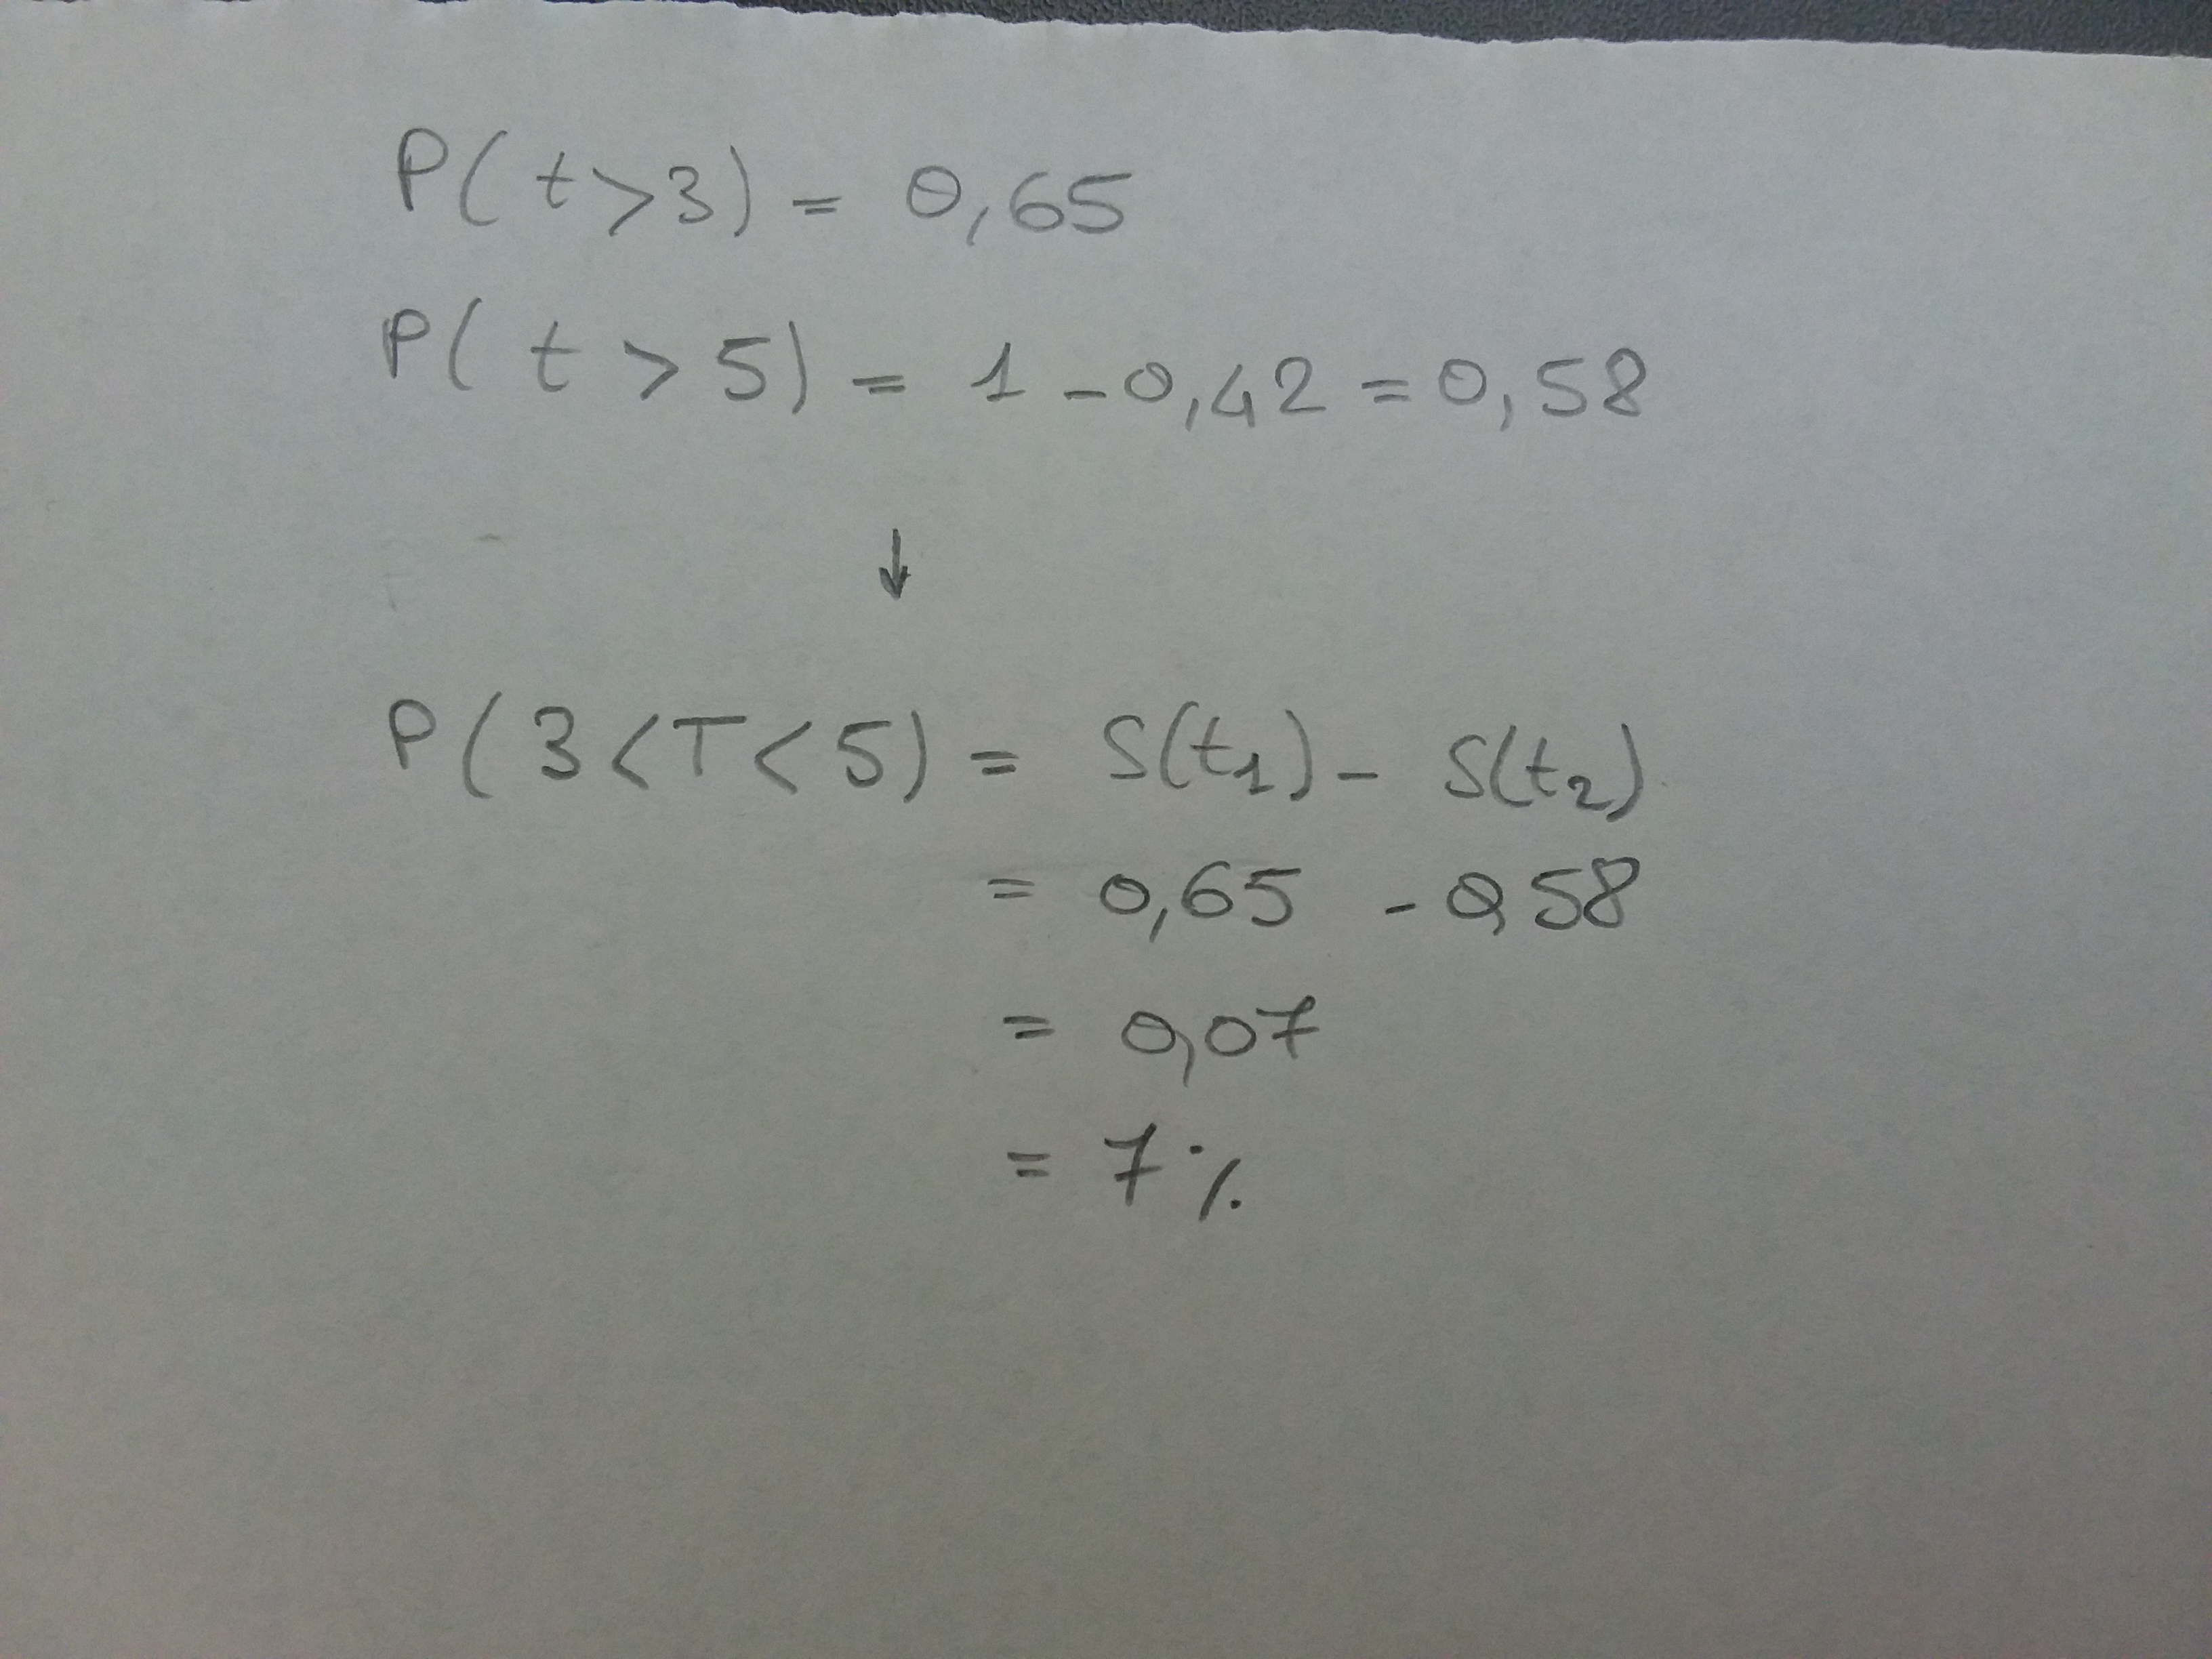 P(t>3) = 0,65
P(t > 5) = 1 - 0,42 = 0,58
↓
P(3<T<5) = S(t₁) - S(t₂)
= 0,65 - 0,58
= 0,07
= 7%